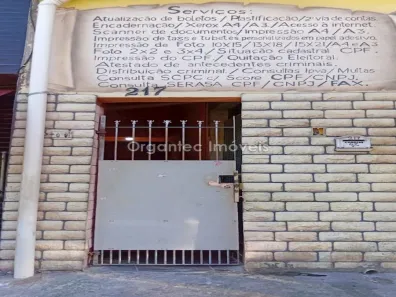 Serviços:
Atualização de boletos / Plastificação / 2ª via de contas.
Encadernação / Xerox A4 / A3. / Acesso à internet.
Scanner de documentos / Impressão A4 / A3.
Impressão de
Impressão de Foto 10x15 / 13x18 / 15x21 / A4 e A3
Foto 2x2 e 3x4 / Situação cadastral CPF.
Impressão do CPF / Quitação Eleitoral.
Atestado de antecedentes criminais.
Distribuição criminal. / Consultas Ipva / Multas
Consulta SCPC e Score CPF / CNPJ.
Consulta SERASA CPF / CNPJ / FAX.
217
Organtec Imóveis